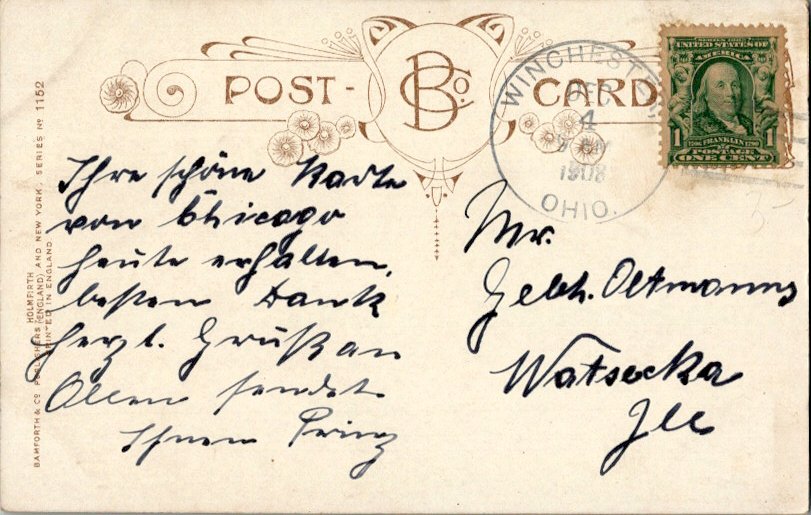 POST- B Co. CARD
WINCHESTER
DEC
4
1908
OHIO.
SERIES 1902
UNITED STATES OF
AMERICA
1 1706 FRANKLIN 1790 1
POSTAGE
ONE CENT
Ihre schöne Karte
von Chicago
heute erhalten,
besten Dank
herzl. Gruß an
Allen sendet
Ihnen Prinz
Mr.
Gebh. Oltmanns
Watsecka
Ill
BAMFORTH & Co. PUBLISHERS HOLMFIRTH (ENGLAND) AND NEW YORK. SERIES No 1152
PRINTED IN ENGLAND